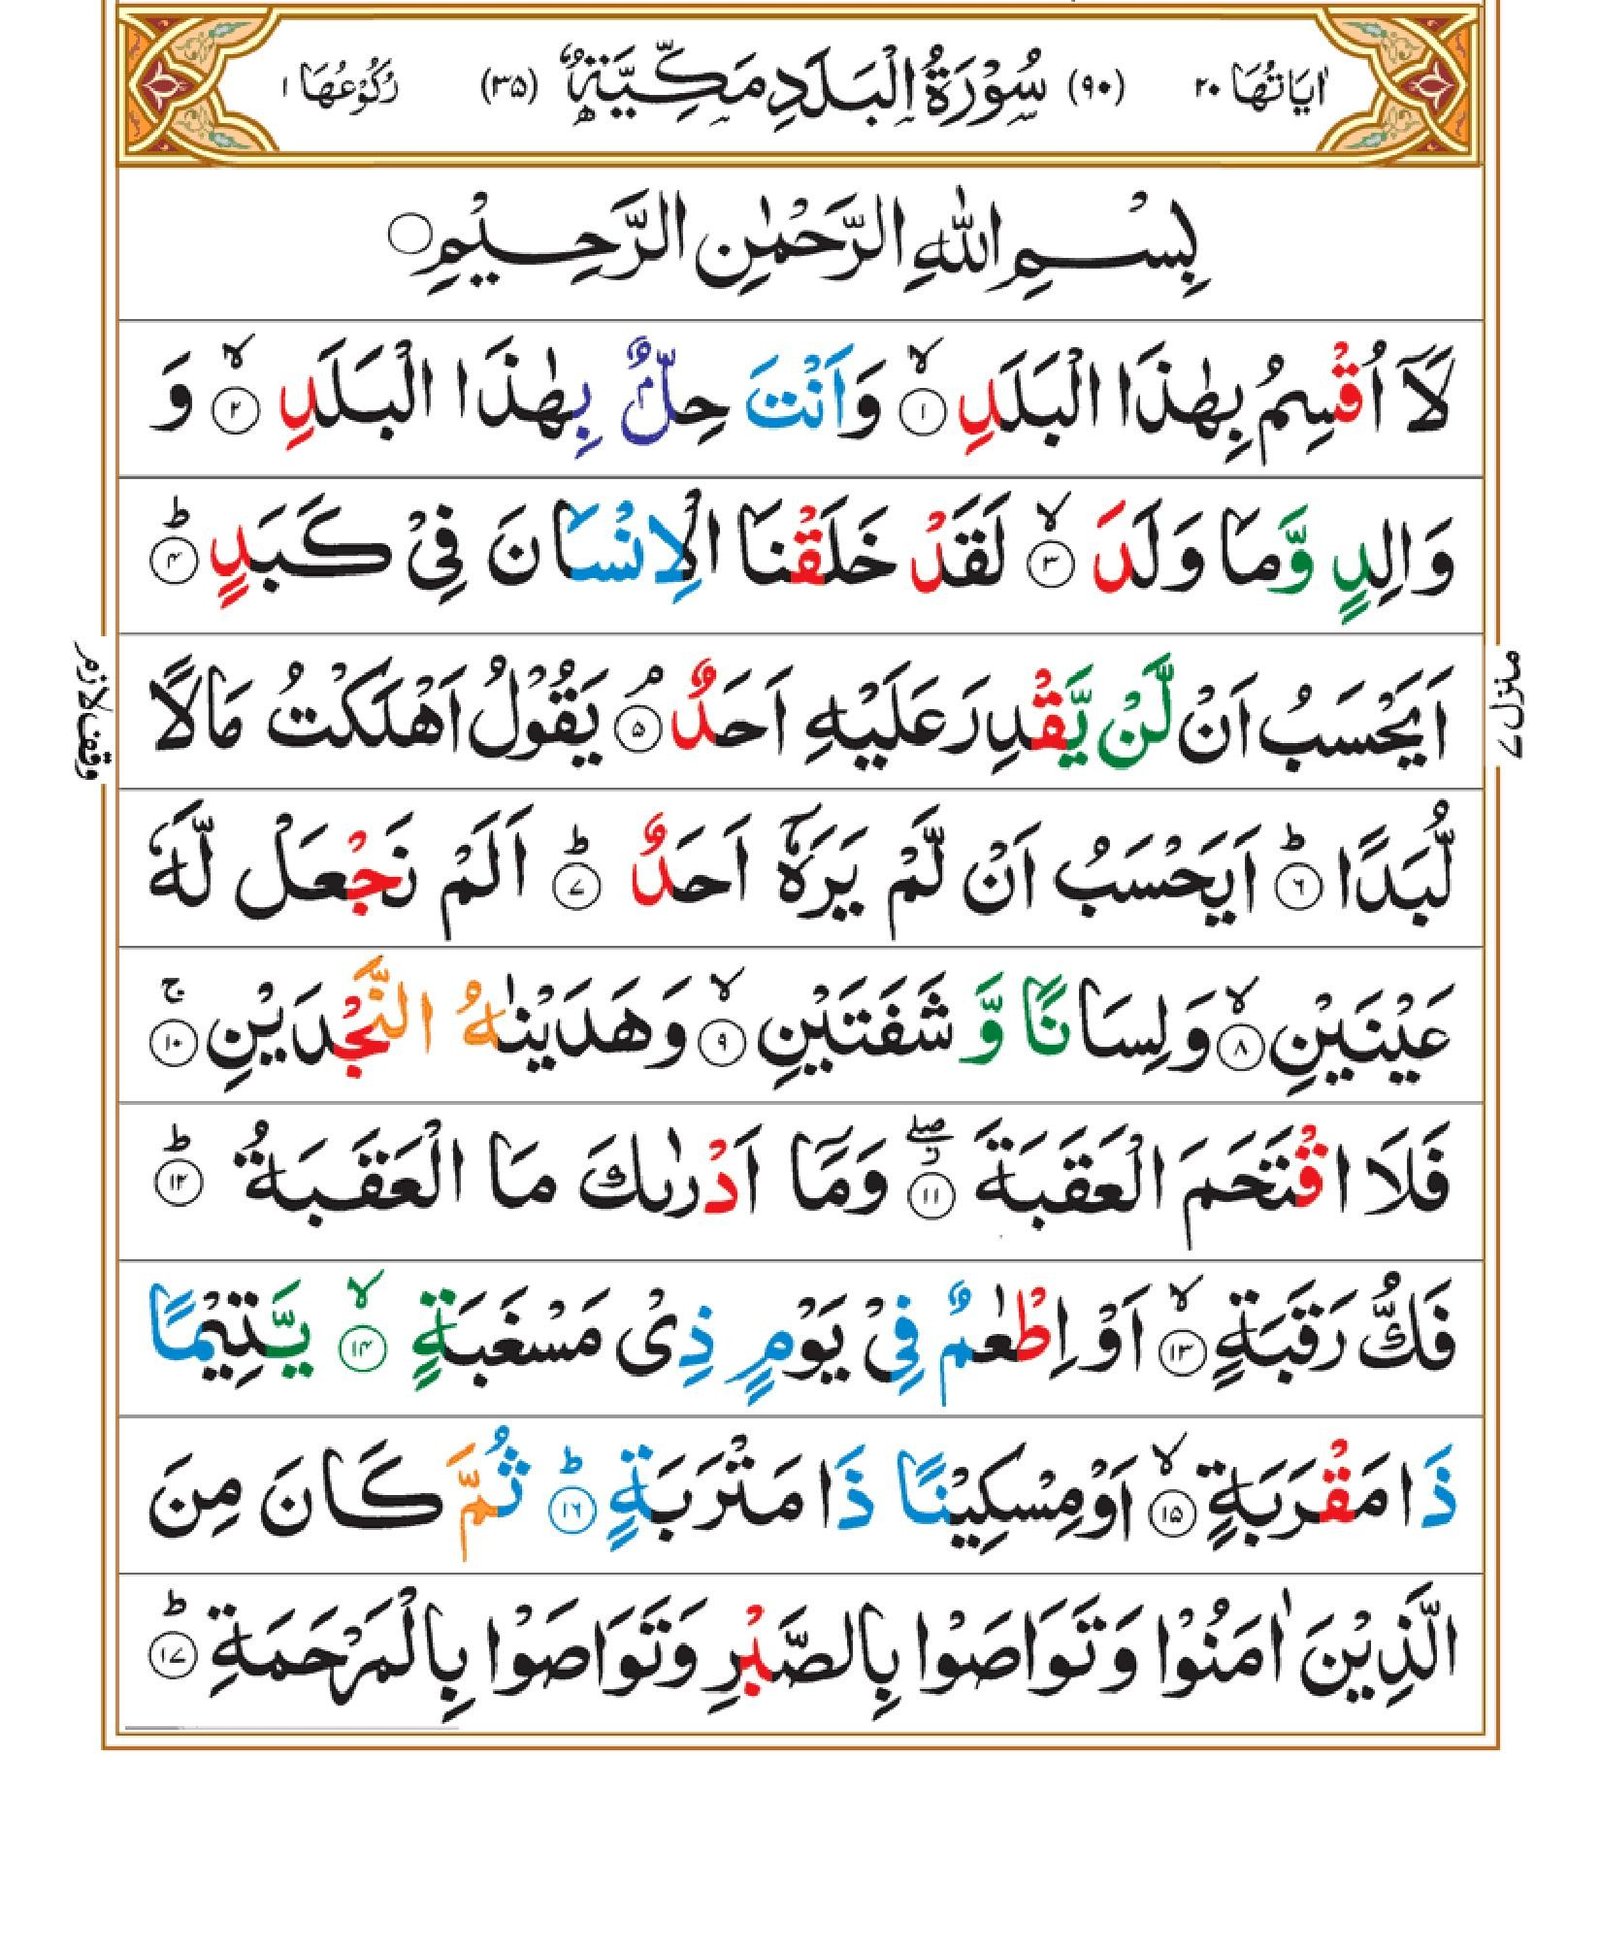 اٰيَاتُهَا ٢٠ (٩٠) سُوْرَةُ الْبَلَدِ مَكِّيَّةٌ (٣٥) رُكُوْعُهَا ١
بِسْمِ اللّٰهِ الرَّحْمٰنِ الرَّحِيْمِ
لَآ اُقْسِمُ بِهٰذَا الْبَلَدِ ۙ‏﴿١﴾ وَاَنْتَ حِلٌّۢ بِهٰذَا الْبَلَدِ ۙ‏﴿٢﴾ وَ
وَالِدٍ وَّمَا وَلَدَ ۙ‏﴿٣﴾ لَقَدْ خَلَقْنَا الْاِنْسَانَ فِىْ كَبَدٍ ؕ‏﴿٤﴾
اَيَحْسَبُ اَنْ لَّنْ يَّقْدِرَ عَلَيْهِ اَحَدٌ ۘ‏﴿٥﴾ يَقُوْلُ اَهْلَكْتُ مَالًا
لُّبَدًا ؕ‏﴿٦﴾ اَيَحْسَبُ اَنْ لَّمْ يَرَهٗۤ اَحَدٌ ؕ‏﴿٧﴾ اَلَمْ نَجْعَلْ لَّهٗ
عَيْنَيْنِ ۙ‏﴿٨﴾ وَلِسَانًا وَّشَفَتَيْنِ ۙ‏﴿٩﴾ وَهَدَيْنٰهُ النَّجْدَيْنِ ۚ‏﴿١٠﴾
فَلَا اقْتَحَمَ الْعَقَبَةَ ۖ‏﴿١١﴾ وَمَآ اَدْرٰٮكَ مَا الْعَقَبَةُ ؕ‏﴿١٢﴾
فَكُّ رَقَبَةٍ ۙ‏﴿١٣﴾ اَوْ اِطْعٰمٌ فِىْ يَوْمٍ ذِىْ مَسْغَبَةٍ ۙ‏﴿١٤﴾ يَّتِيْمًا
ذَا مَقْرَبَةٍ ۙ‏﴿١٥﴾ اَوْ مِسْكِيْنًا ذَا مَتْرَبَةٍ ؕ‏﴿١٦﴾ ثُمَّ كَانَ مِنَ
الَّذِيْنَ اٰمَنُوْا وَتَوَاصَوْا بِالصَّبْرِ وَتَوَاصَوْا بِالْمَرْحَمَةِ ؕ‏﴿١٧﴾
منزل ٧
وقف لازم